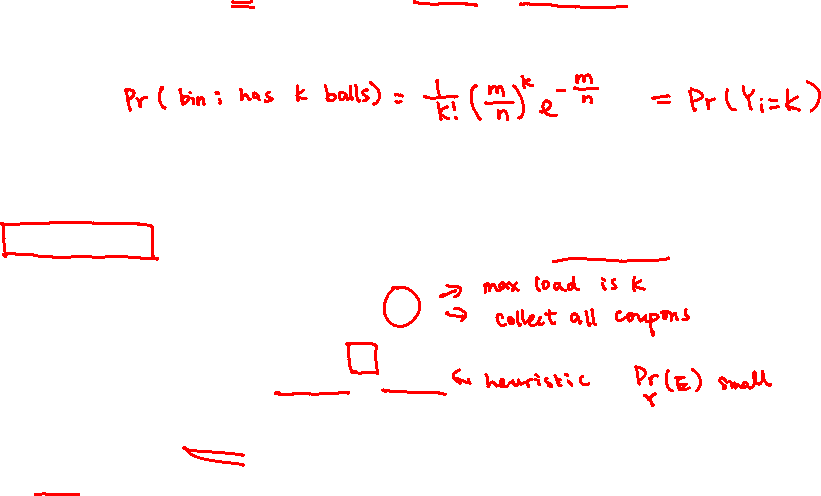 Pr ( bin i has k balls) = 1/k! (m/n)^k e^{-m/n} = Pr(Y_i=k)
→ max load is k
→ collect all coupons
← heuristic Pr_Y(E) small